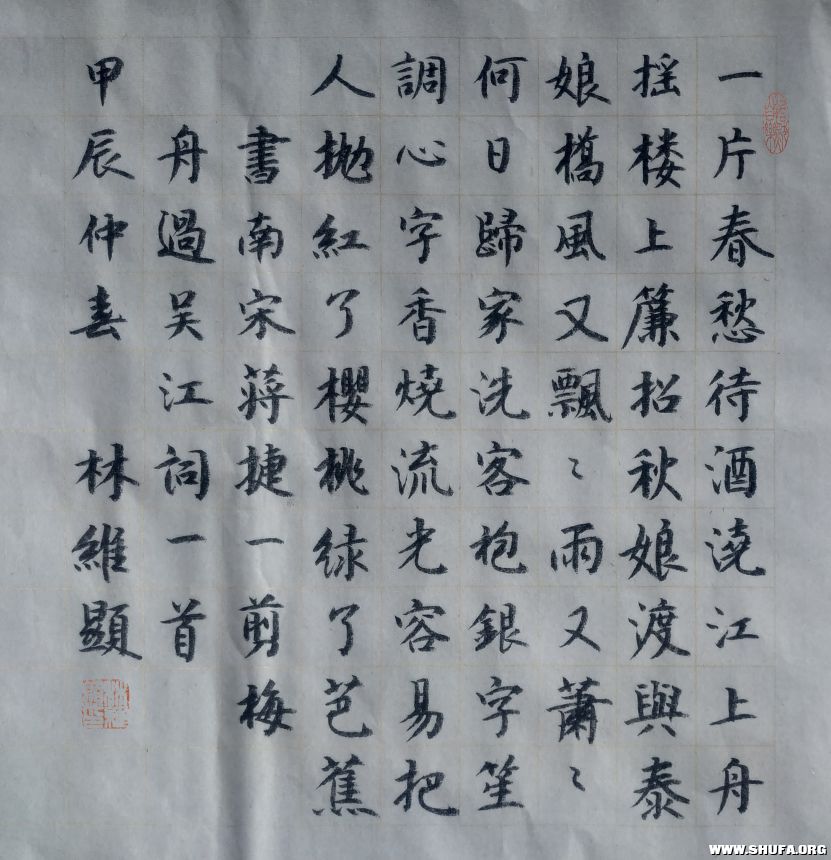 一片春愁待酒澆江上舟
摇楼上簾招秋娘渡與泰
娘橋風又飄〻雨又蕭〻
何日歸家洗客袍銀字笙
調心字香燒流光容易把
人抛紅了櫻桃緑了芭蕉
書南宋蒋捷一剪梅
舟過吴江詞一首
甲辰仲春 林維顯
WWW.SHUFA.ORG